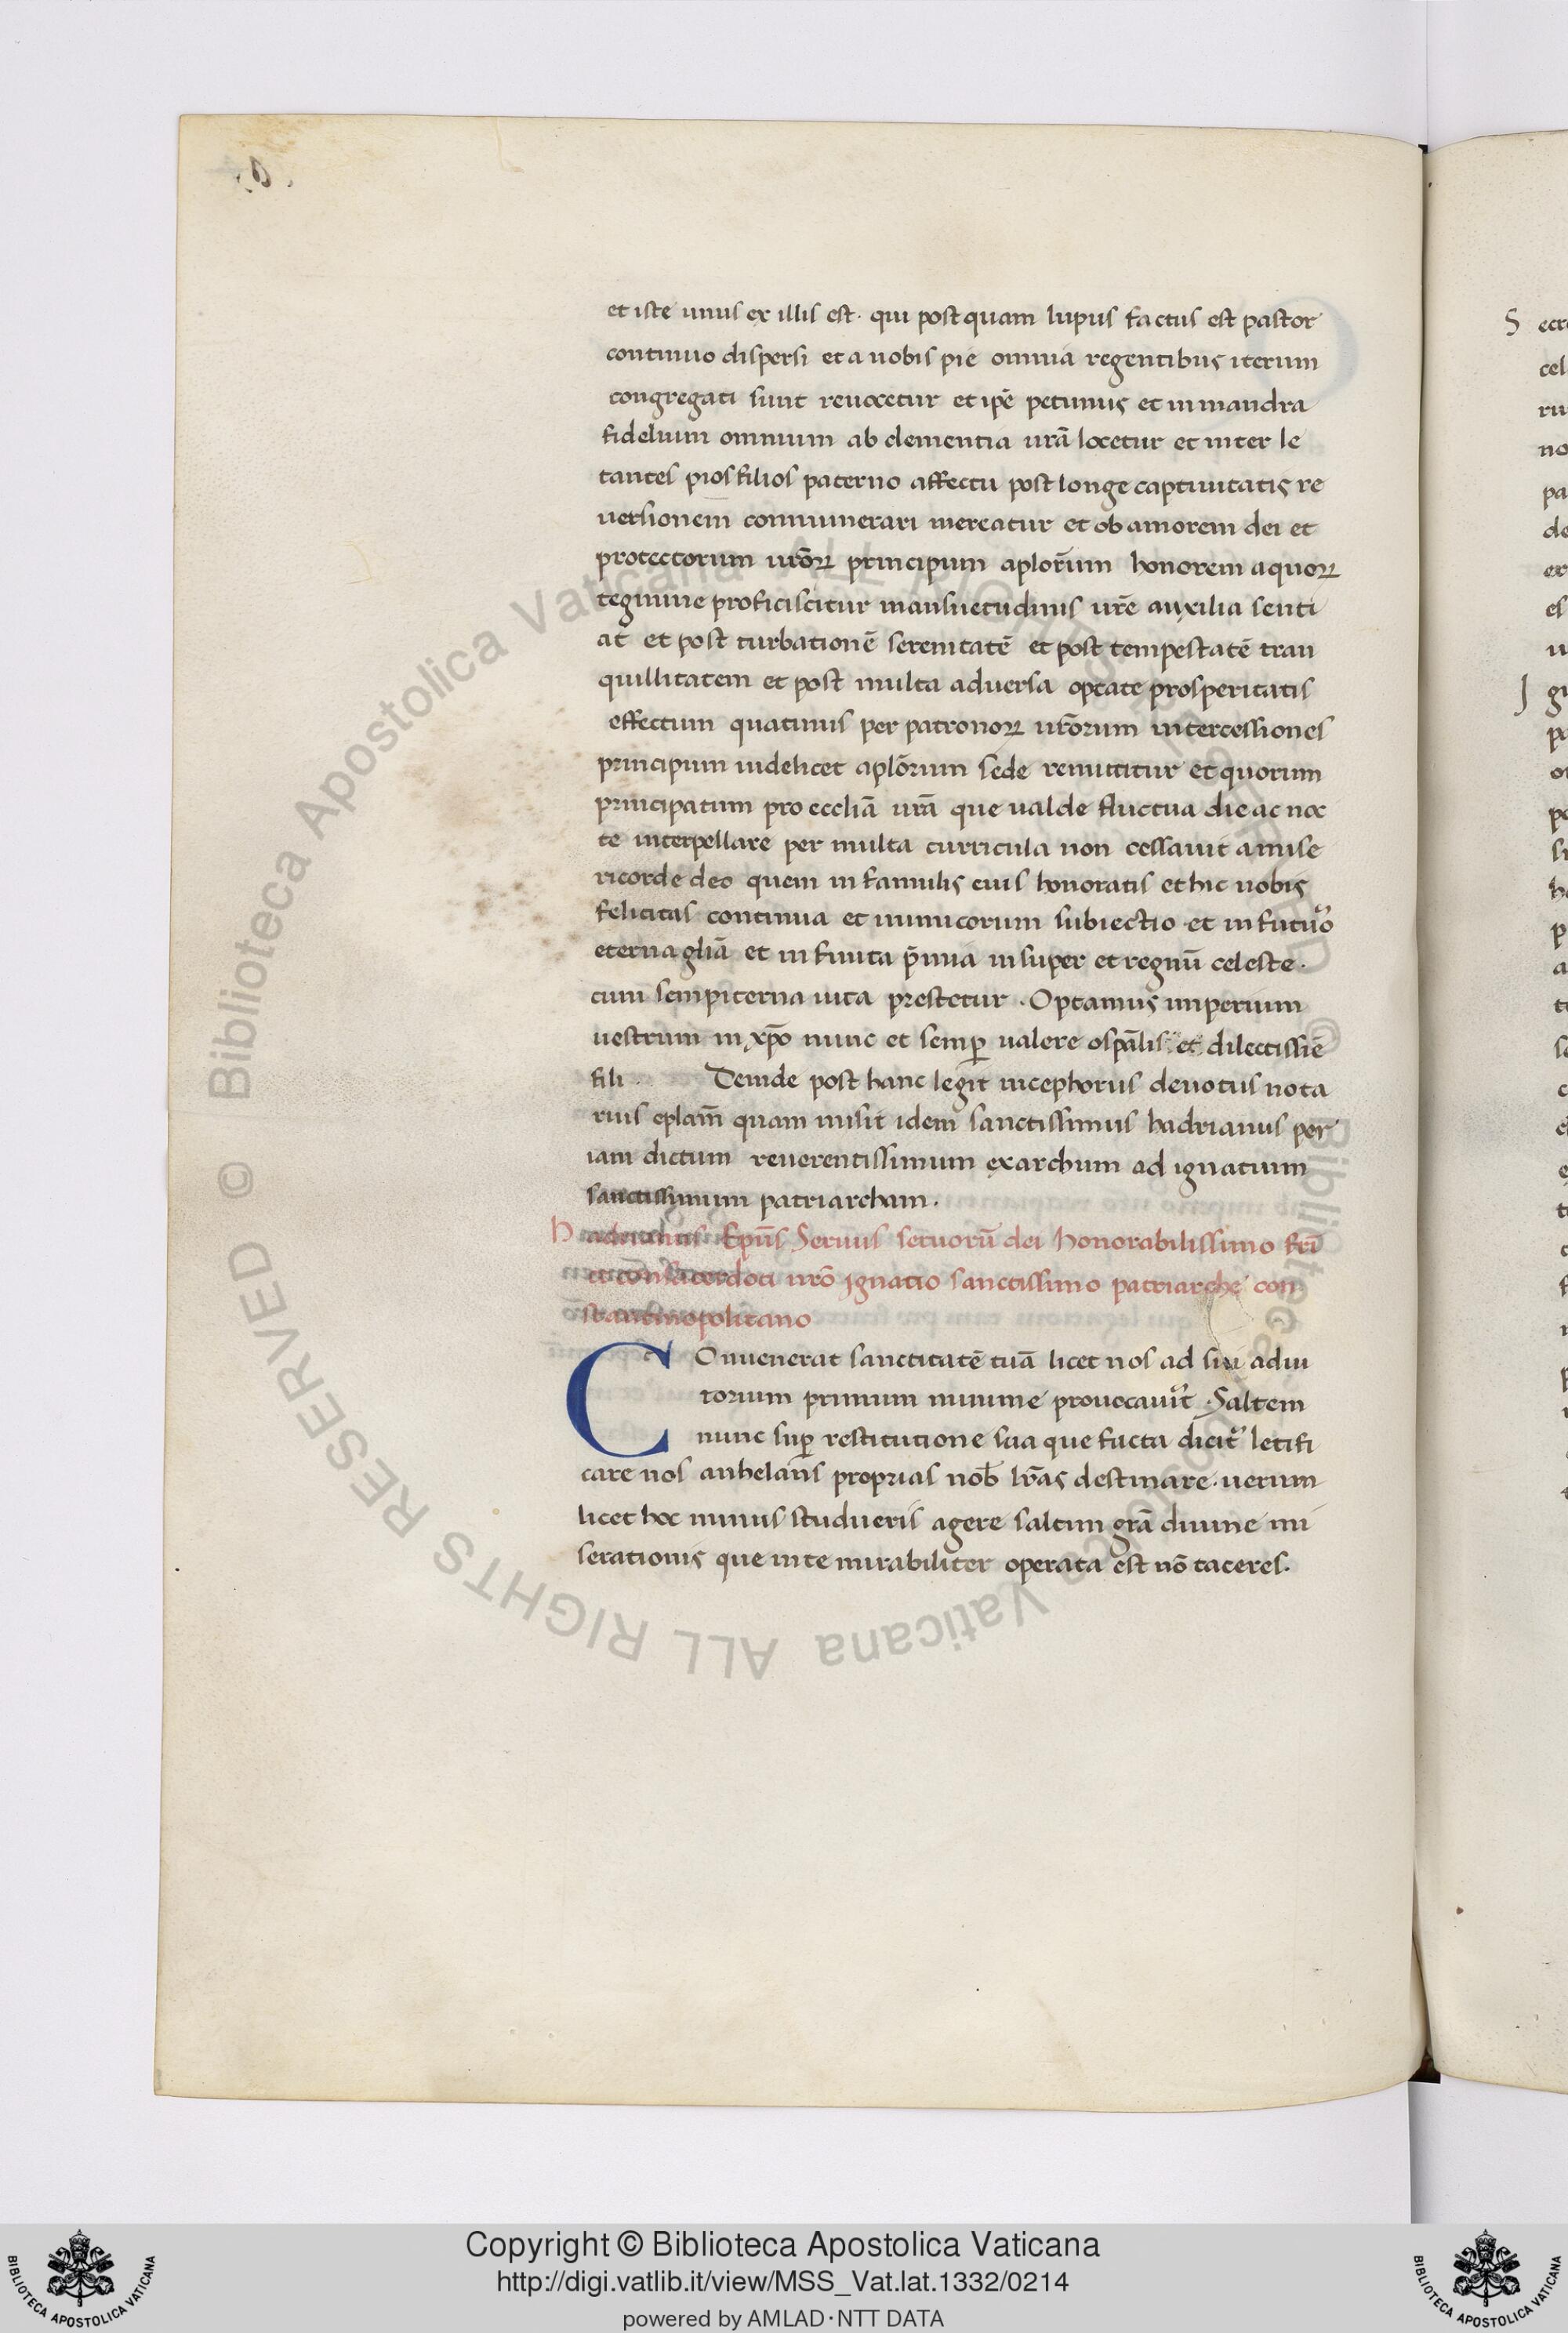 et iste unus ex illis est. qui postquam lupus factus est pastor
continuo dispersi et a uobis pie omnia regentibus iterum
congregati sunt reuocetur et ip̄e petimus et in mandra
fidelium omnium ab clementia ur̄a locetur et inter le
tantes pios filios paterno affectu post longe captiuitatis re
uersionem connumerari mereatur et ob amorem dei et
protectorum ur̄oꝝ principum aplo᷑rum honorem a quoꝝ
tegmine proficiscitur mansuetudinis ur̄e auxilia senti
at et post turbationē serenitatē et post tempestatē tran
quillitatem et post multa aduersa optate prosperitatis
effectum quatinus per patronoꝝ ur̄orum intercessiones
principum uidelicet apl̄orum sede remittitur et quorum
principatum pro eccl̄ia ur̄a que ualde fluctua die ac noc
te interpellare per multa curricula non cessauit a mise
ricorde deo quem in famulis eius honoratis et hic uobis
felicitas continua et inimicorum subiectio et in futuro
eterna gl̄ia et infinita p̄mia insuper et regnū celeste.
cum sempiterna uita prestetur. Optamus imperium
uestrum in xp̄o nunc et semꝑ ualere osp̄alis et dilectissi̅e
fili. Deinde post hanc legit nicephorus deuotus nota
rius epl̄am quam misit idem sanctissimus hadrianus per
iam dictum reuerentissimum exarchum ad ignatium
sanctissimum patriarcham.
Hadrianus Ep̄us Seruus seruorū dei honorabilissimo fr̄i
et consacerdoti ur̄o ignatio sanctissimo patriarche con
stantinopolitano
COnuenerat sanctitatē tuā licet nos ad sui adiu
torium primum minime prouocauit᷑. Saltem
nunc suꝑ restitutione sua que facta dicit᷑ letifi
care nos anhelans proprias nob̄ lr̄as destinare. uerum
licet hoc minus studueris agere saltim gr̄a diuine mi
serationis que in te mirabiliter operata est nō taceres.
Copyright © Biblioteca Apostolica Vaticana
http://digi.vatlib.it/view/MSS_Vat.lat.1332/0214
powered by AMLAD·NTT DATA
BIBLIOTECA APOSTOLICA VATICANA
BIBLIOTECA APOSTOLICA VATICANA
© Biblioteca Apostolica Vaticana ALL RIGHTS RESERVED
© Biblioteca Apostolica Vaticana ALL RIGHTS RESERVED